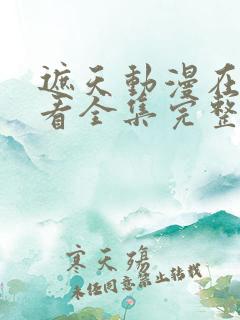 遮天動漫在
看全集完整
寒天殇
未经同意禁止转载